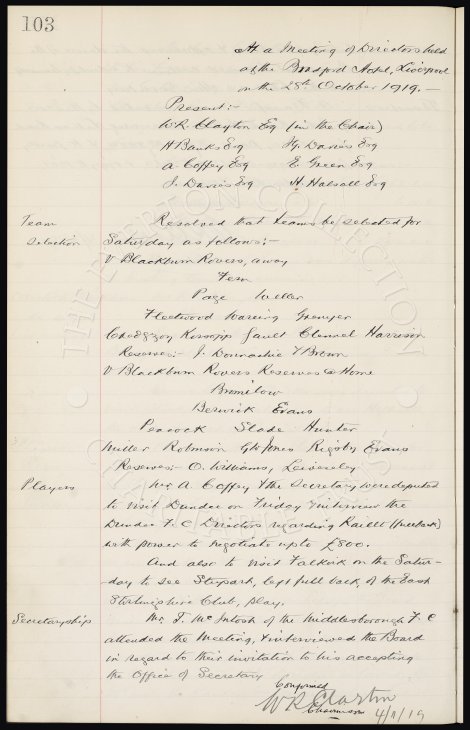 103
At a Meeting of Directors held
at the Bradford Hotel, Liverpool
on the 28th October 1919. —
Present:-
W.R. Clayton Esq (in the Chair)
H Banks Esq H. Davies Esq
A. Coffey Esq E. Green Esq
J. Davies Esq H. Halsall Esq
Team Resolved that teams be selected for
Selection Saturday as follows:-
V Blackburn Rovers, away
Fern
Page Weller
Fleetwood Wareing Grenyer
Chedgzoy Kirsopp Gault Clennel Harrison
Reserves:- J. Donnachie T Brown
V Blackburn Rovers Reserves @ Home
Bromilow
Berwick Evans
Peacock Slade Hunter
Miller Robinson Jones Rigsby Evans
Reserves - O. Williams,
Players Mr A. Coffey & the Secretary were deputed
to visit Dundee on Friday & interview the
Dundee F.C Directors regarding Raitt (fullback)
with power to negotiate upto £800.
And also to visit Falkirk on the Satur-
day to see left full back, of the East
Stirlingshire Club, play.
Secretaryship Mr. T. McIntosh of the Middlesborough F.C
attended the Meeting, & interviewed the Board
in regard to their invitation to his accepting
the Office of Secretary
Confirmed
W R Clayton
Chairman 4/11/19
THE EVERTON COLLECTION